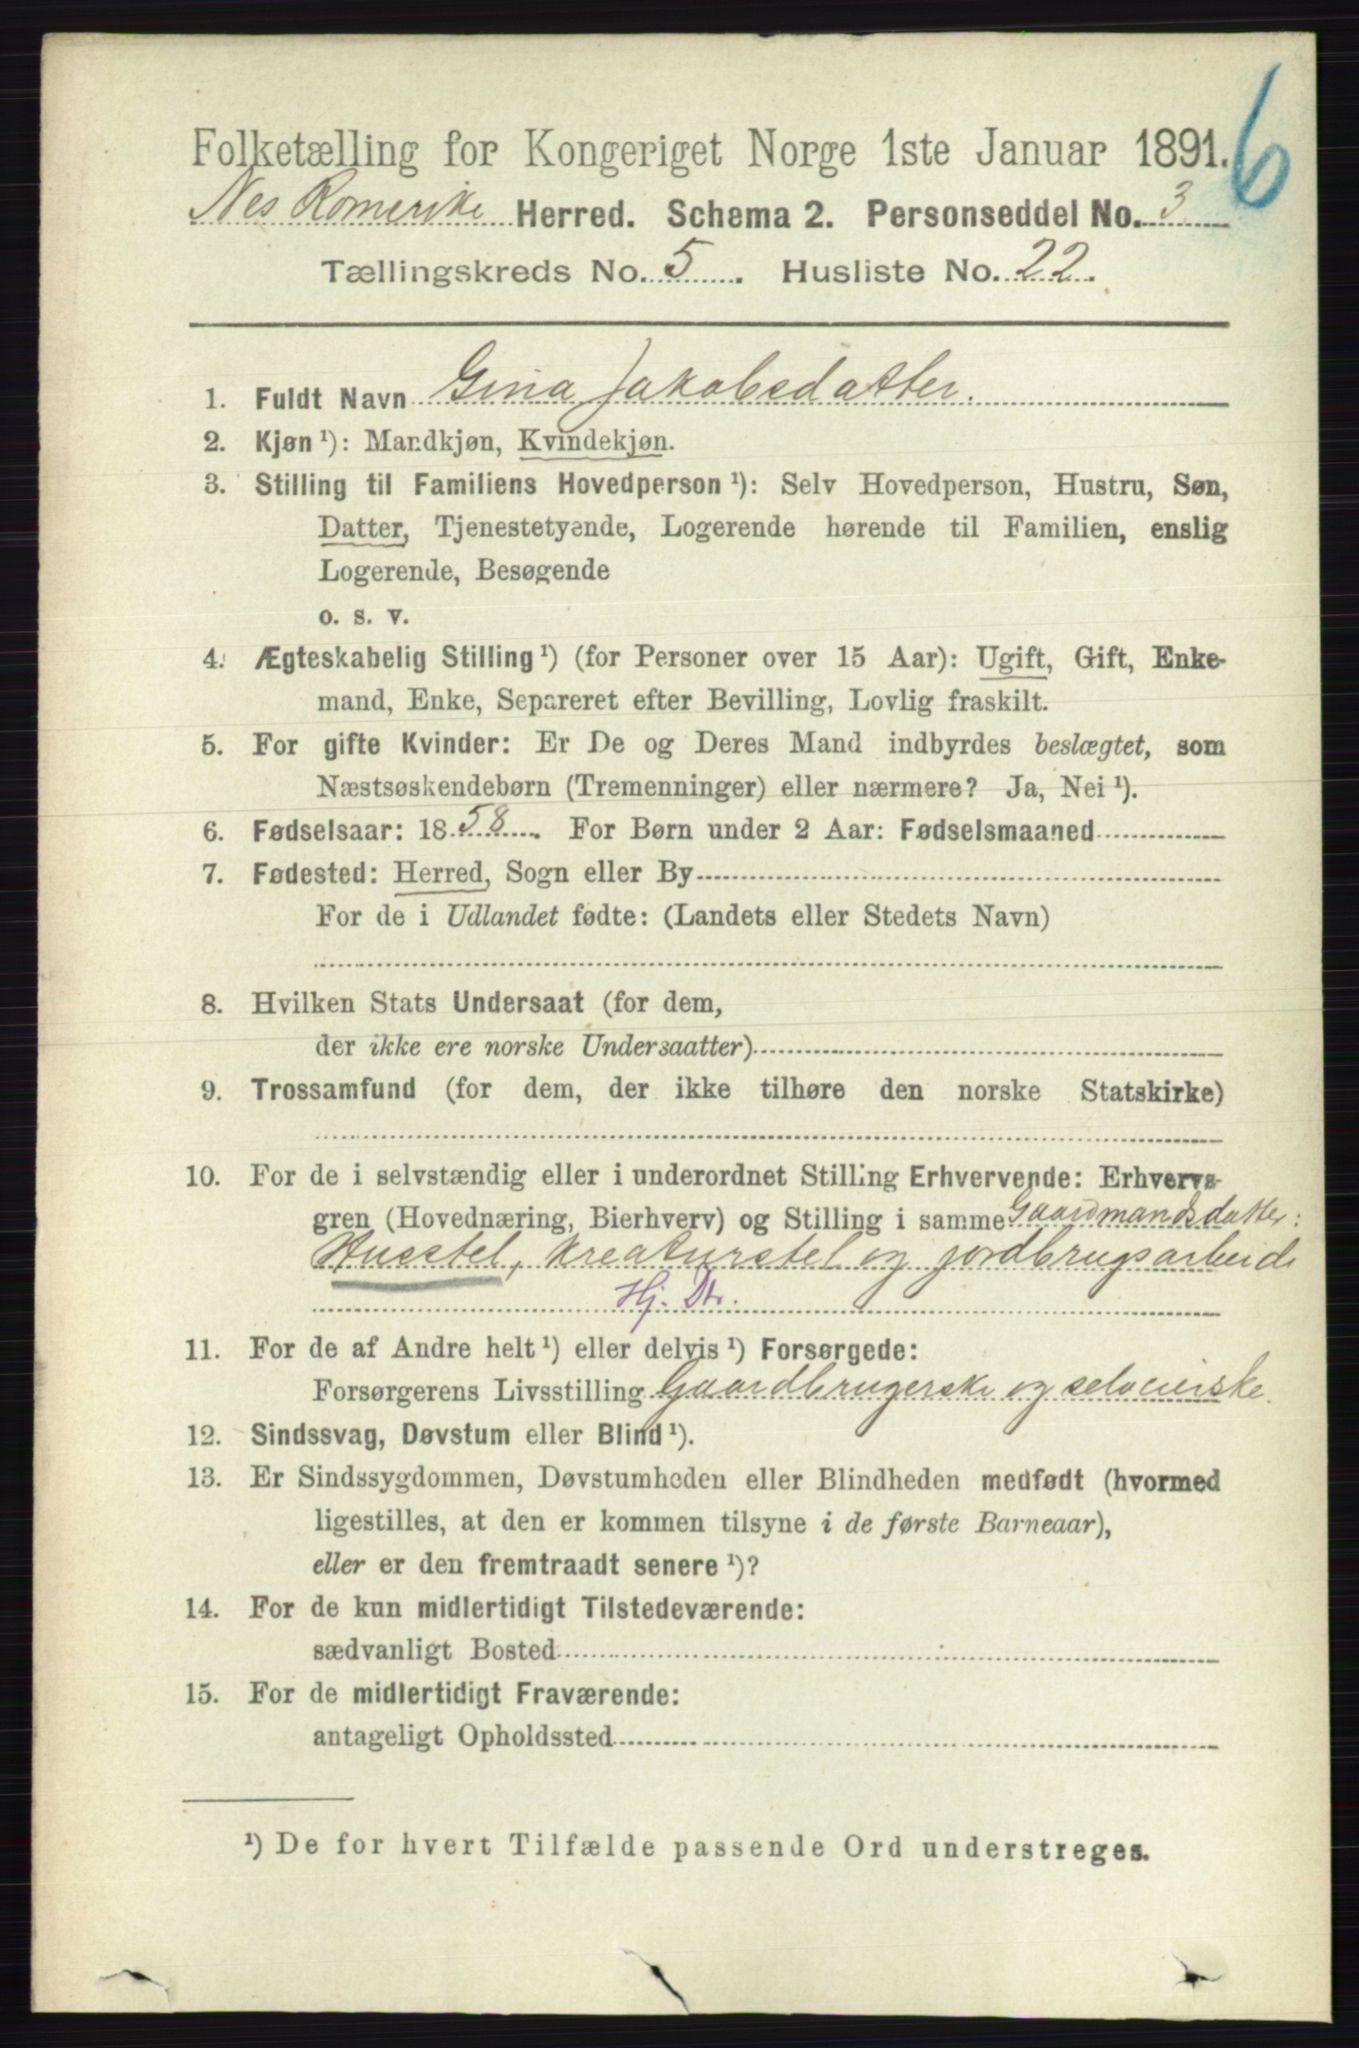 6
Folketælling for Kongeriget Norge 1ste Januar 1891.
Nes Romerike Herred. Schema 2. Personseddel No. 3
Tællingskreds No. 5. Husliste No. 22.
1. Fuldt Navn Gina Jakobsdatter.
2. Kjøn ¹): Mandkjøn, Kvindekjøn.
3. Stilling til Familiens Hovedperson ¹): Selv Hovedperson, Hustru, Søn,
Datter, Tjenestetyende, Logerende hørende til Familien, enslig
Logerende, Besøgende
o. s. v.
4. Ægteskabelig Stilling ¹) (for Personer over 15 Aar): Ugift, Gift, Enke-
mand, Enke, Separeret efter Bevilling, Lovlig fraskilt.
5. For gifte Kvinder: Er De og Deres Mand indbyrdes beslægtet, som
Næstsøskendebørn (Tremenninger) eller nærmere? Ja, Nei ¹).
6. Fødselsaar: 1858. For Børn under 2 Aar: Fødselsmaaned
7. Fødested: Herred, Sogn eller By
For de i Udlandet fødte: (Landets eller Stedets Navn)
8. Hvilken Stats Undersaat (for dem,
der ikke ere norske Undersaatter)
9. Trossamfund (for dem, der ikke tilhøre den norske Statskirke)
10. For de i selvstændig eller i underordnet Stilling Erhvervende: Erhvervs-
gren (Hovednæring, Bierhverv) og Stilling i samme Gaardmandsdatter:
Husstel, kreaturstel og jordbrugsarbeide
Hj. Dtr.
11. For de af Andre helt ¹) eller delvis ¹) Forsørgede:
Forsørgerens Livsstilling Gaardbrugerske og selveierske.
12. Sindssvag, Døvstum eller Blind ¹).
13. Er Sindssygdommen, Døvstumheden eller Blindheden medfødt (hvormed
ligestilles, at den er kommen tilsyne i de første Barneaar),
eller er den fremtraadt senere ¹)?
14. For de kun midlertidigt Tilstedeværende:
sædvanligt Bosted
15. For de midlertidigt Fraværende:
antageligt Opholdssted
¹) De for hvert Tilfælde passende Ord understreges.